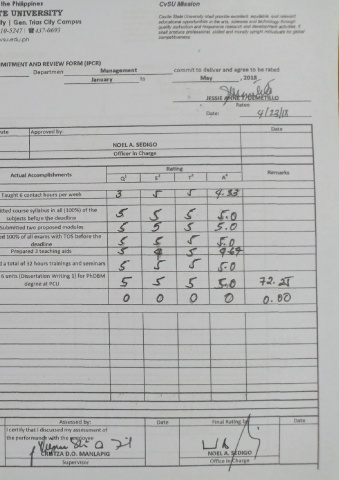 the Philippines
TE UNIVERSITY
ty | Gen. Trias City Campus
10-5247 | ☎ 437-0693
vsu.edu.ph
CvSU Mission
Cavite State University shall provide excellent, equitable and relevant
educational opportunities in the arts, sciences and technology through
quality instruction and responsive research and development activities. It
shall produce professional, skilled and morally upright individuals for global
competitiveness.
MITMENT AND REVIEW FORM (IPCR)
Departmen Management commit to deliver and agree to be rated
January to May , 2018
JESSIE ANNE T. DEMETILLO
Ratee
Date:
Date Approved by: Date
NOEL A. SEDIGO
Officer in Charge
Actual Accomplishments Rating Remarks
Q1 E2 T3 A4
Taught 6 contact hours per week 3 5 5 4.33
tted course syllabus in all (100%) of the
subjects before the deadline 5 5 5 5.0
Submitted two proposed modules 5 5 5 5.0
ed 100% of all exams with TOS before the
deadline 5 5 5 5.0
Prepared 3 teaching aids 5 4 5 4.67
d a total of 32 hours trainings and seminars 5 5 5 5.0
6 units (Dissertation Writing 1) for PHDBM
degree at PCU 5 5 5 5.0 72.25
0 0 0 0 0.00
Assessed by: Date Final Rating by Date
I certify that I discussed my assessment of
the performance with the employee
CRISTZA D.O. MANLAPIG NOEL A. SEDIGO
Supervisor Officer in Charge